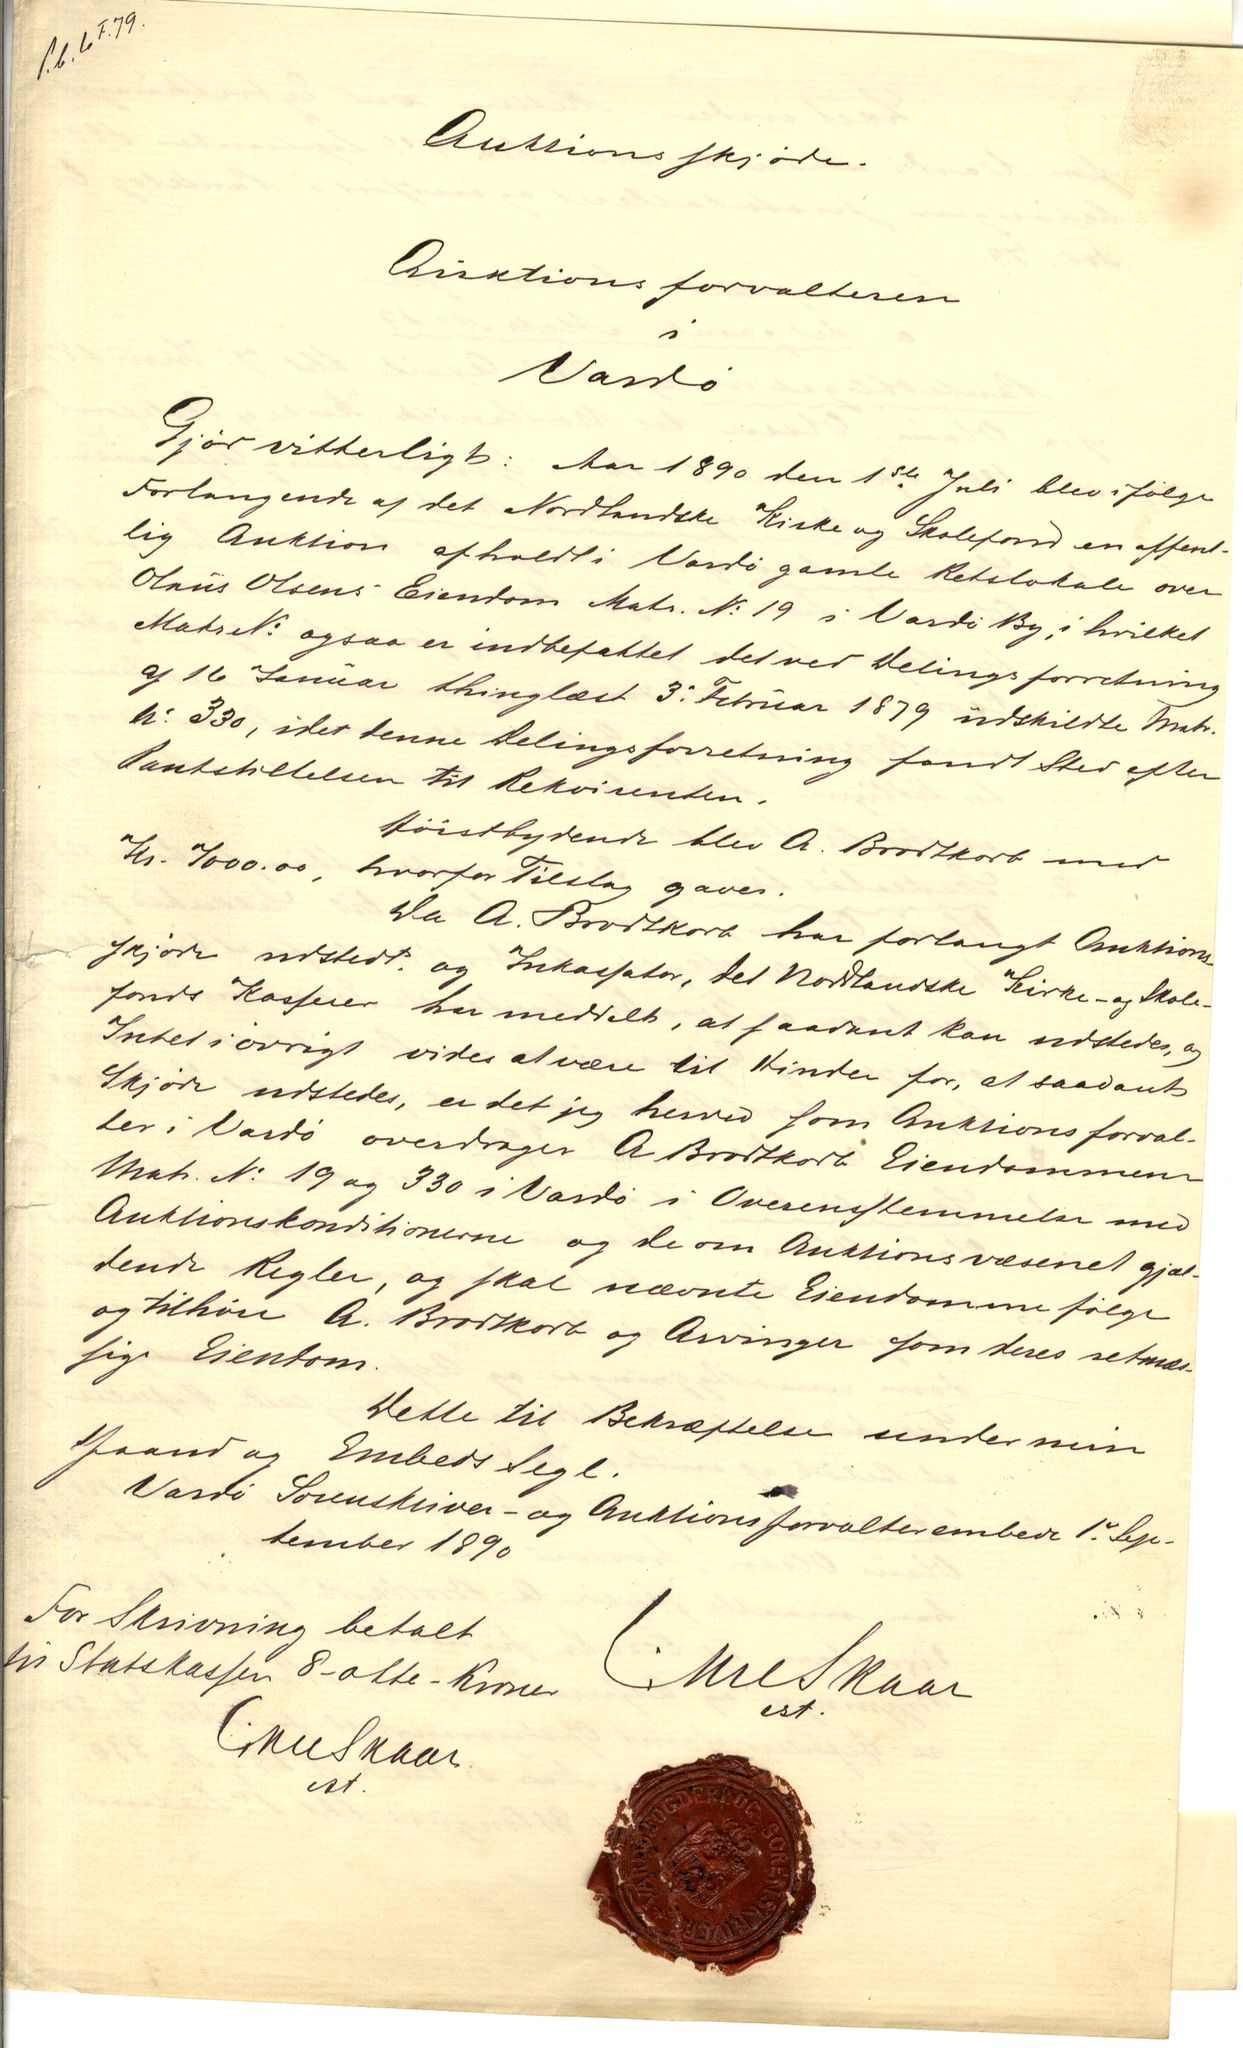 P.b. 6 F. 79.
Auktionsskjøde.
Auktionsforvalteren
i
Vardø
Gjør vitterligt: Aar 1890 den 1ste Juli blev ifølge
Forlangende af det Nordlandske Kirke og Skolefond en offent-
lig Auktion afholdt i Vardø gamle Retslokale over
Olaüs Olsens Eiendom Matr. No 19 i Vardø By, i hvilket
Matr No ogsaa er indbefattet det ved Delingsforretning
af 16 Januar thinglæst 3. Februar 1879 udskildte Matr.
No 330, idet denne Delingsforretning fandt Sted efter
Pantstillelsen til Rekvirenten.
Høistbydende blev A. Brodtkorb med
Kr. 7000.00, hvorfor Tilslag gaves.
Da A. Brodtkorb har forlangt Auktions
skjøde udstedt, og Inkassator, det Nordlandske Kirke- og Skole-
fonds Kasserer har meddelt, at saadant kan udstedes, og
Intet iøvrigt vides at være til Hinder for, at saadant
Skjøde udstedes, er det jeg herved som Auktionsforval-
ter i Vardø overdrager A Brodtkorb Eiendommene
Matr. No 19 og 330 i Vardø i Overensstemmelse med
Auktionskonditionerne og de om Auktionsvæsenet gjæl-
dende Regler, og skal nævnte Eiendomme følge
og tilhøre A. Brodtkorb og Arvinger som deres retmæs-
sige Eiendom.
Dette til Bekræftelse under min
Haand og Embeds Segl.
Vardø Sorenskriver- og Auktionsforvalterembede 1. Sep-
tember 1890
For Skrivning betalt
til Statskassen 8 - otte - Kroner
Skaar
cst.
Skaar
cst.
OG SORENSKRIVER